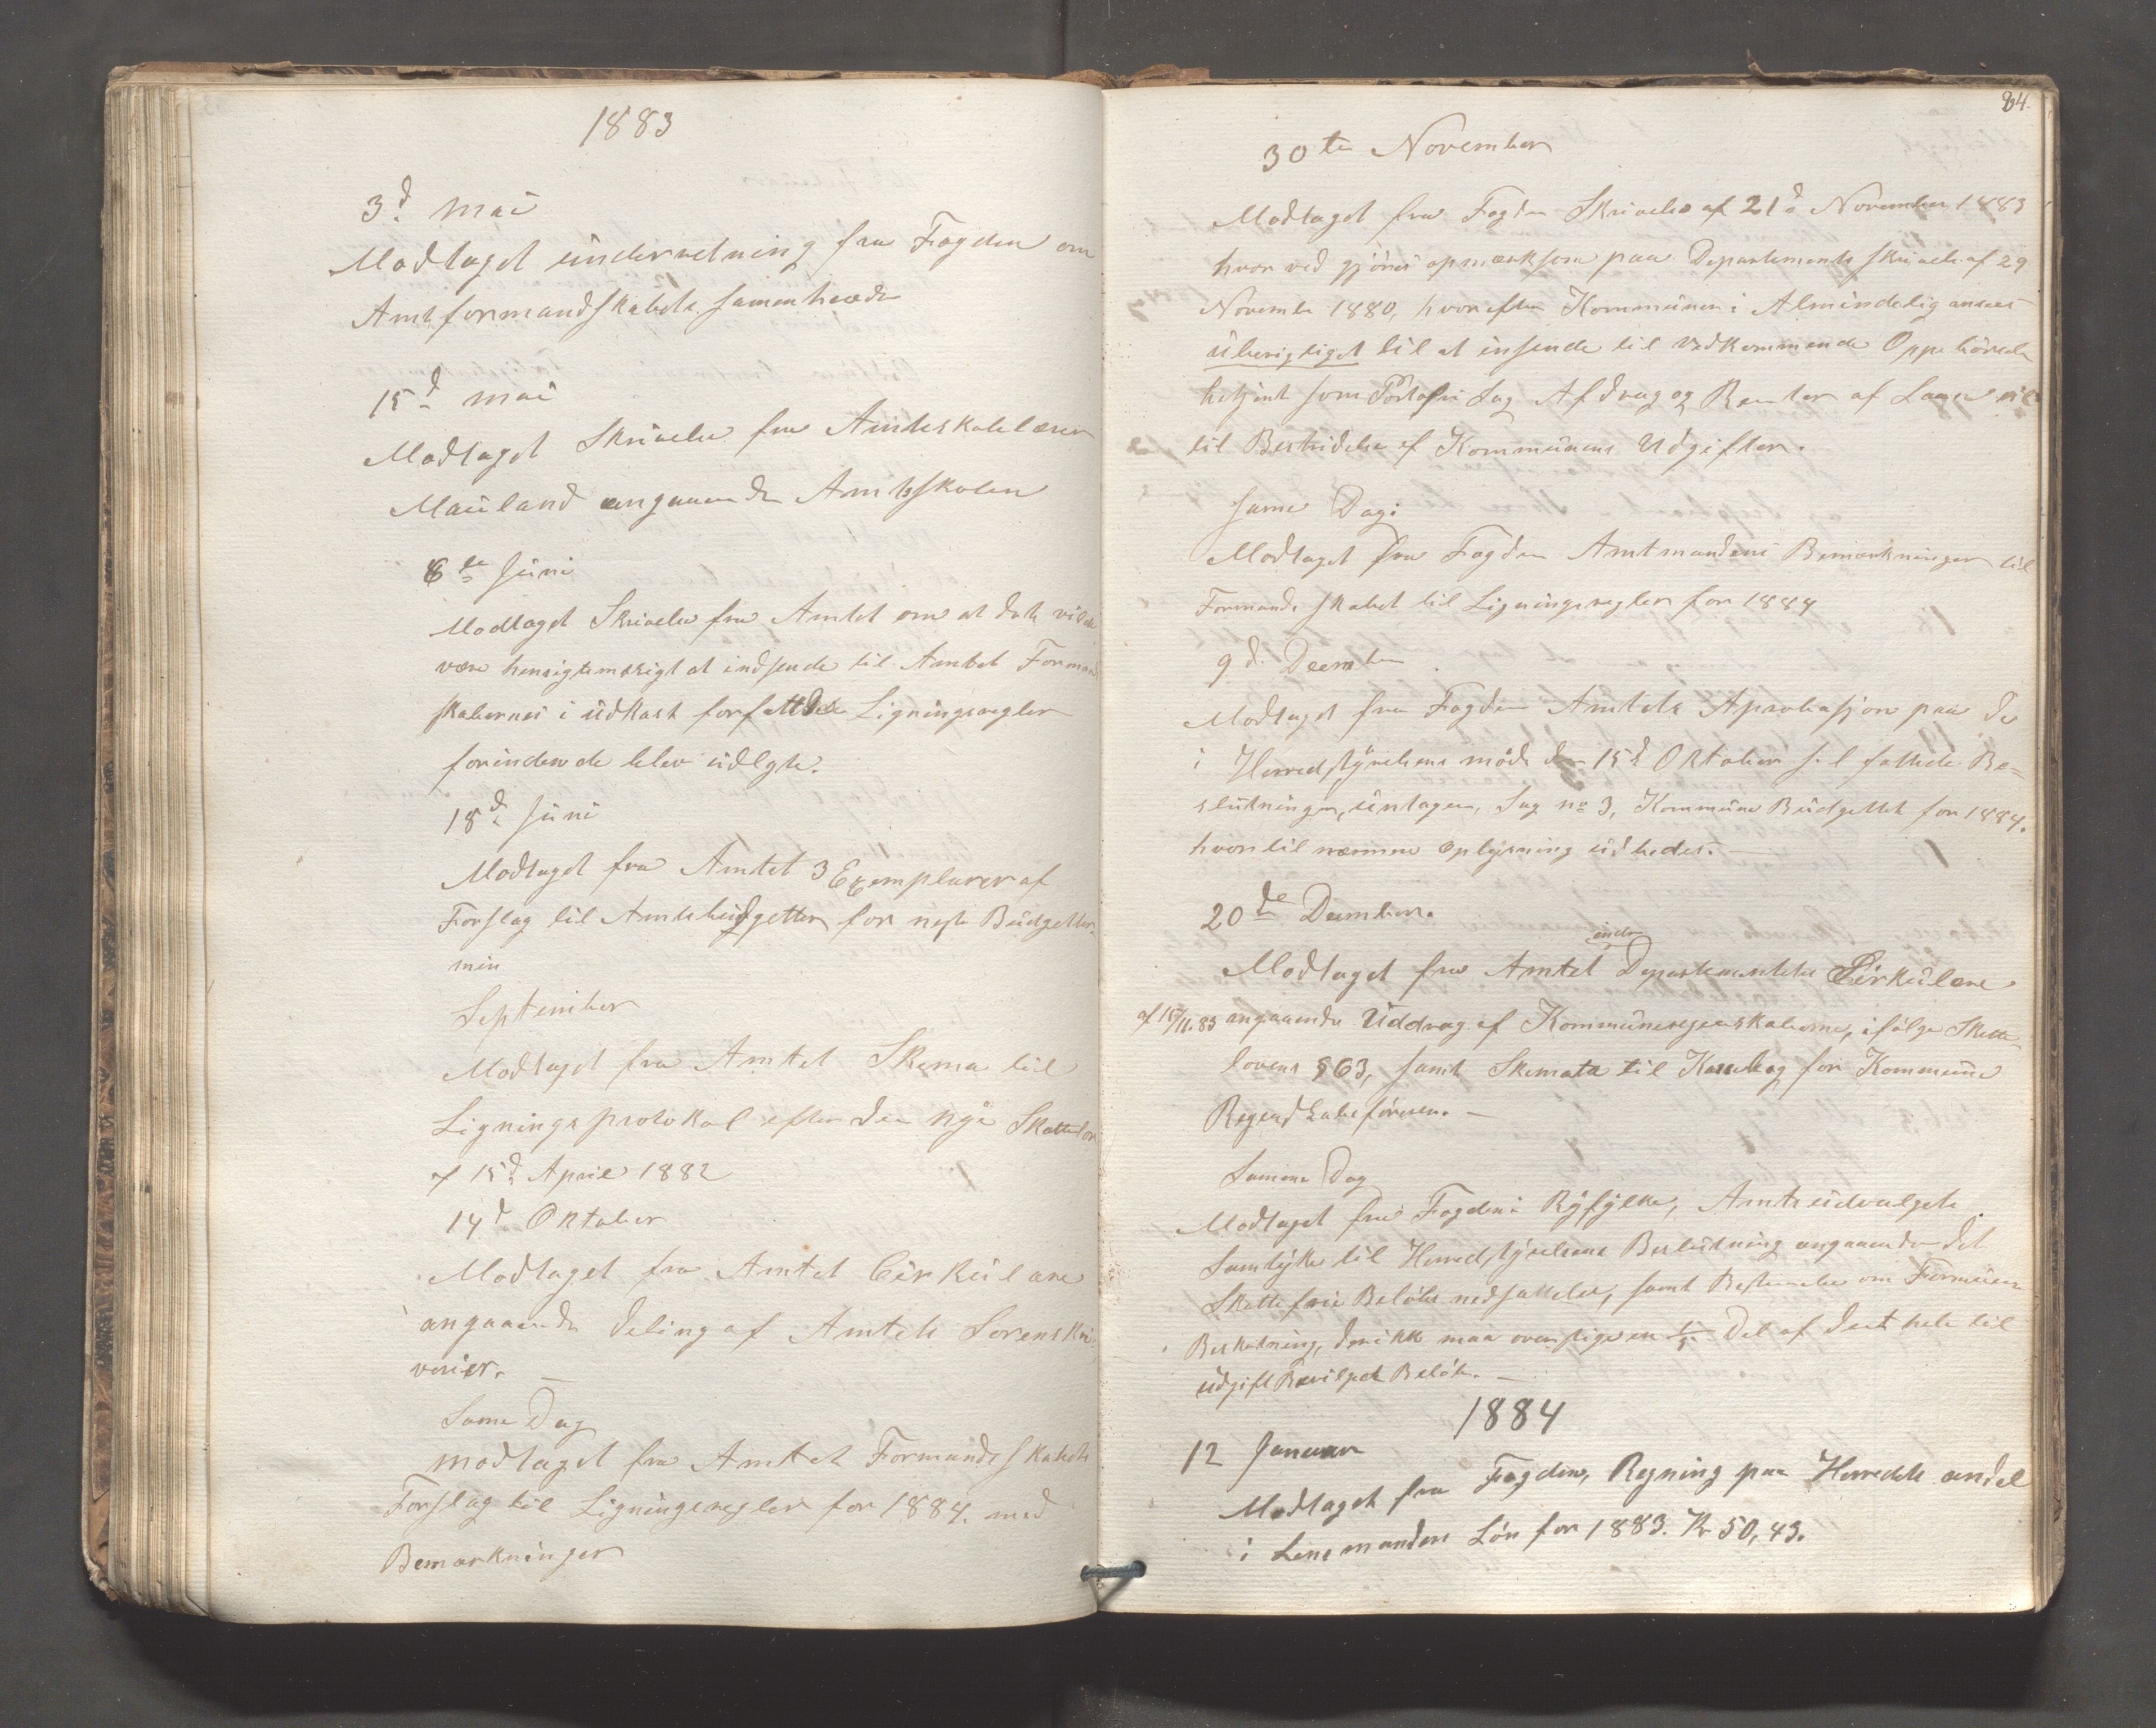 1883
3d mai
Modtaget underretning fra Fogden om
Amtformandskabets samenhræde
15d mai
Modtaget Skrivelse fra Amtskolelærer
Mauland angaaende Amtsskolen
6te Juni
Modtaget Skrivelse fra Amtet om at dete vilde
være hensigtsmæsigt at indsende til Amtet Formand
skabernes i udkast forfattede Ligningsregler
forinden de blev udlgte.
18d Juni
Modtaget fra Amtet 3 Exemplarer af
Forslag til Amtsbudgetter for neste Budgetter
min
September
Modtaget fra Amtet Skema til
Ligningsprotokol efter den nye Skattelov
af 15d April 1882
14d Oktober
Modtaget fra Amtet Cirkulære
angaaende deling af Amtets Sorenskri
verier. —
Same Dag
modtaget fra Amtet Formandsskabets
Forslag til Ligningsregler for 1884. med
Bemærkninger
84.
30te November
Modtaget fra Fogden Skrivelse af 21d November 1883
hvorved gjöres opmærksom paa Departements skrivelse af 29
Novembe 1880, hvorefter Kommunen i Almindelig ansees
uberigtiget til at insende til vedkommende Oppebörsels
betjent som Portofri Sag Afdrag og Renter af Laan
til Bestridelse af Kommunens Udgifter.
same Dag:
Modtaget fra Fogden Amtmandens Bemærkninger til
Formandsskabet til Ligningsregler for 1884
9d. Deember
Modtaget fra Fogden Amtets Aprobasjon paa de
i Herredstyrelsens möde den 15d Oktober s. l fattede Be=
slutninger, untagen, Sag no 3, Kommune Budgettet for 1884.
hvortil nærmere Oplysning udbedes. —
20de Deember.
indre
Modtaget fra Amtet Departementets Cirkulære
af 15/11.83 angaaende Uddrag af Kommuneregnskaberne, ifölge Skatte
lovens § 63, samt Skemata til Kassebog for Kommune
Regnskabsföreren. —
Samme Dag
Modtaget fra Fogden i Ryfylke, Amtsudvalgets
Samtykke til Herredstyrelsens Beslutning angaaende det
Skattefrie Belöbs nedsættelse, samt Bestemelse om Formues
Beskatning, der ikke maa overstige en 1/5 Del af deet hele til
udgift Bevilget Belöb. —
1884
12 Januar
Modtaget fra Fogden, Regning paa Herredets andel
i Lensmandens Lön for 1883. Kr 50,43.